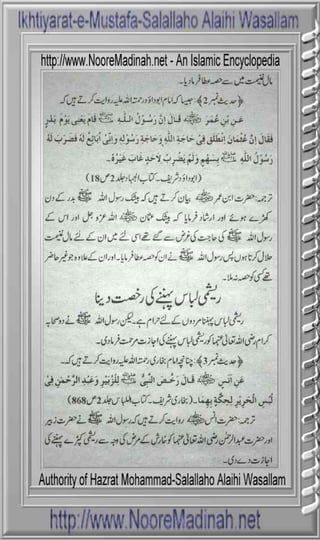 Ikhtiyarat-e-Mustafa-Salallaho Alaihi Wasallam
http://www.NooreMadinah.net - An Islamic Encyclopedia
مال غنیمت میں سے حصہ عطا فرمادیا۔
﴿حدیث نمبر 2﴾: جیسا کہ امام ابوداؤد رحمتہ اللہ علیہ روایت کرتے ہیں کہ
عَنْ بْنِ عُمَرَ ﷺ قَالَ اِنَّ رَسُوْلَ اللّٰہِ ﷺ قَامَ یَعْنِی یَوْمَ بَدْرٍ
فَقَالَ اِنَّ عُثْمَانَ اِنْطَلَقَ فِیْ حَاجَةِ اللّٰہِ وَحَاجَةِ رَسُوْلِهٖ وَاِنِّیْ اُبَایِعُ لَهٗ فَضَرَبَ لَهٗ
رَسُوْلُ اللّٰہِ ﷺ بِسَهْمٍ وَلَمْ یَضْرِبْ لِاَحَدٍ غَابَ غَیْرُهٗ۔
(ابوداؤد شریف۔ کتاب الجہاد جلد 2 ص 18)
ترجمہ: حضرت ابن عمر بیان کرتے ہیں کہ بیشک رسول اللہ ﷺ بدر کے دن
کھڑے ہوئے اور ارشاد فرمایا کہ بیشک عثمان اللہ عزوجل اور اس کے
رسول اللہ ﷺ کی حاجت کی غرض سے گئے تھے اسی لئے میں ان کے لئے مال غنیمت
حلال کرتا ہوں پس رسول اللہ ﷺ نے ان کو حصہ عطا فرمایا۔ اور ان کے علاوہ جو غیر حاضر
تھے کسی کو حصہ نہ ملا۔
ریشمی لباس پہننے کی رخصت دینا
ریشمی لباس پہننا مردوں کے لئے حرام ہے۔ لیکن رسول اللہ ﷺ نے دو صحابہ
کرام رضی اللہ تعالیٰ عنہما کو ریشمی لباس پہننے کی اجازت مرحمت فرما دی۔
﴿حدیث نمبر 3﴾: چنانچہ امام بخاری رحمتہ اللہ علیہ روایت کرتے ہیں کہ۔
عَنْ اَنَسٍ ﷺ قَالَ رَخَّصَ النَّبِیُّ ﷺ لِلزُّبَیْرِ وَعَبْدِ الرَّحْمٰنِ فِیْ
لُبْسِ الْحَرِیْرِ لِحِکَّةٍ بِهِمَا۔ (بخاری شریف۔ کتاب اللباس جلد 2 ص 868)
ترجمہ: حضرت انس روایت کرتے ہیں کہ رسول اللہ ﷺ نے حضرت زبیر
اور حضرت عبدالرحمٰن رضی اللہ تعالیٰ عنہما کو خارش کے مرض کی وجہ سے ریشمی کپڑے پہننے کی
اجازت دے دی۔
Authority of Hazrat Mohammad-Salallaho Alaihi Wasallam
http://www.NooreMadinah.net